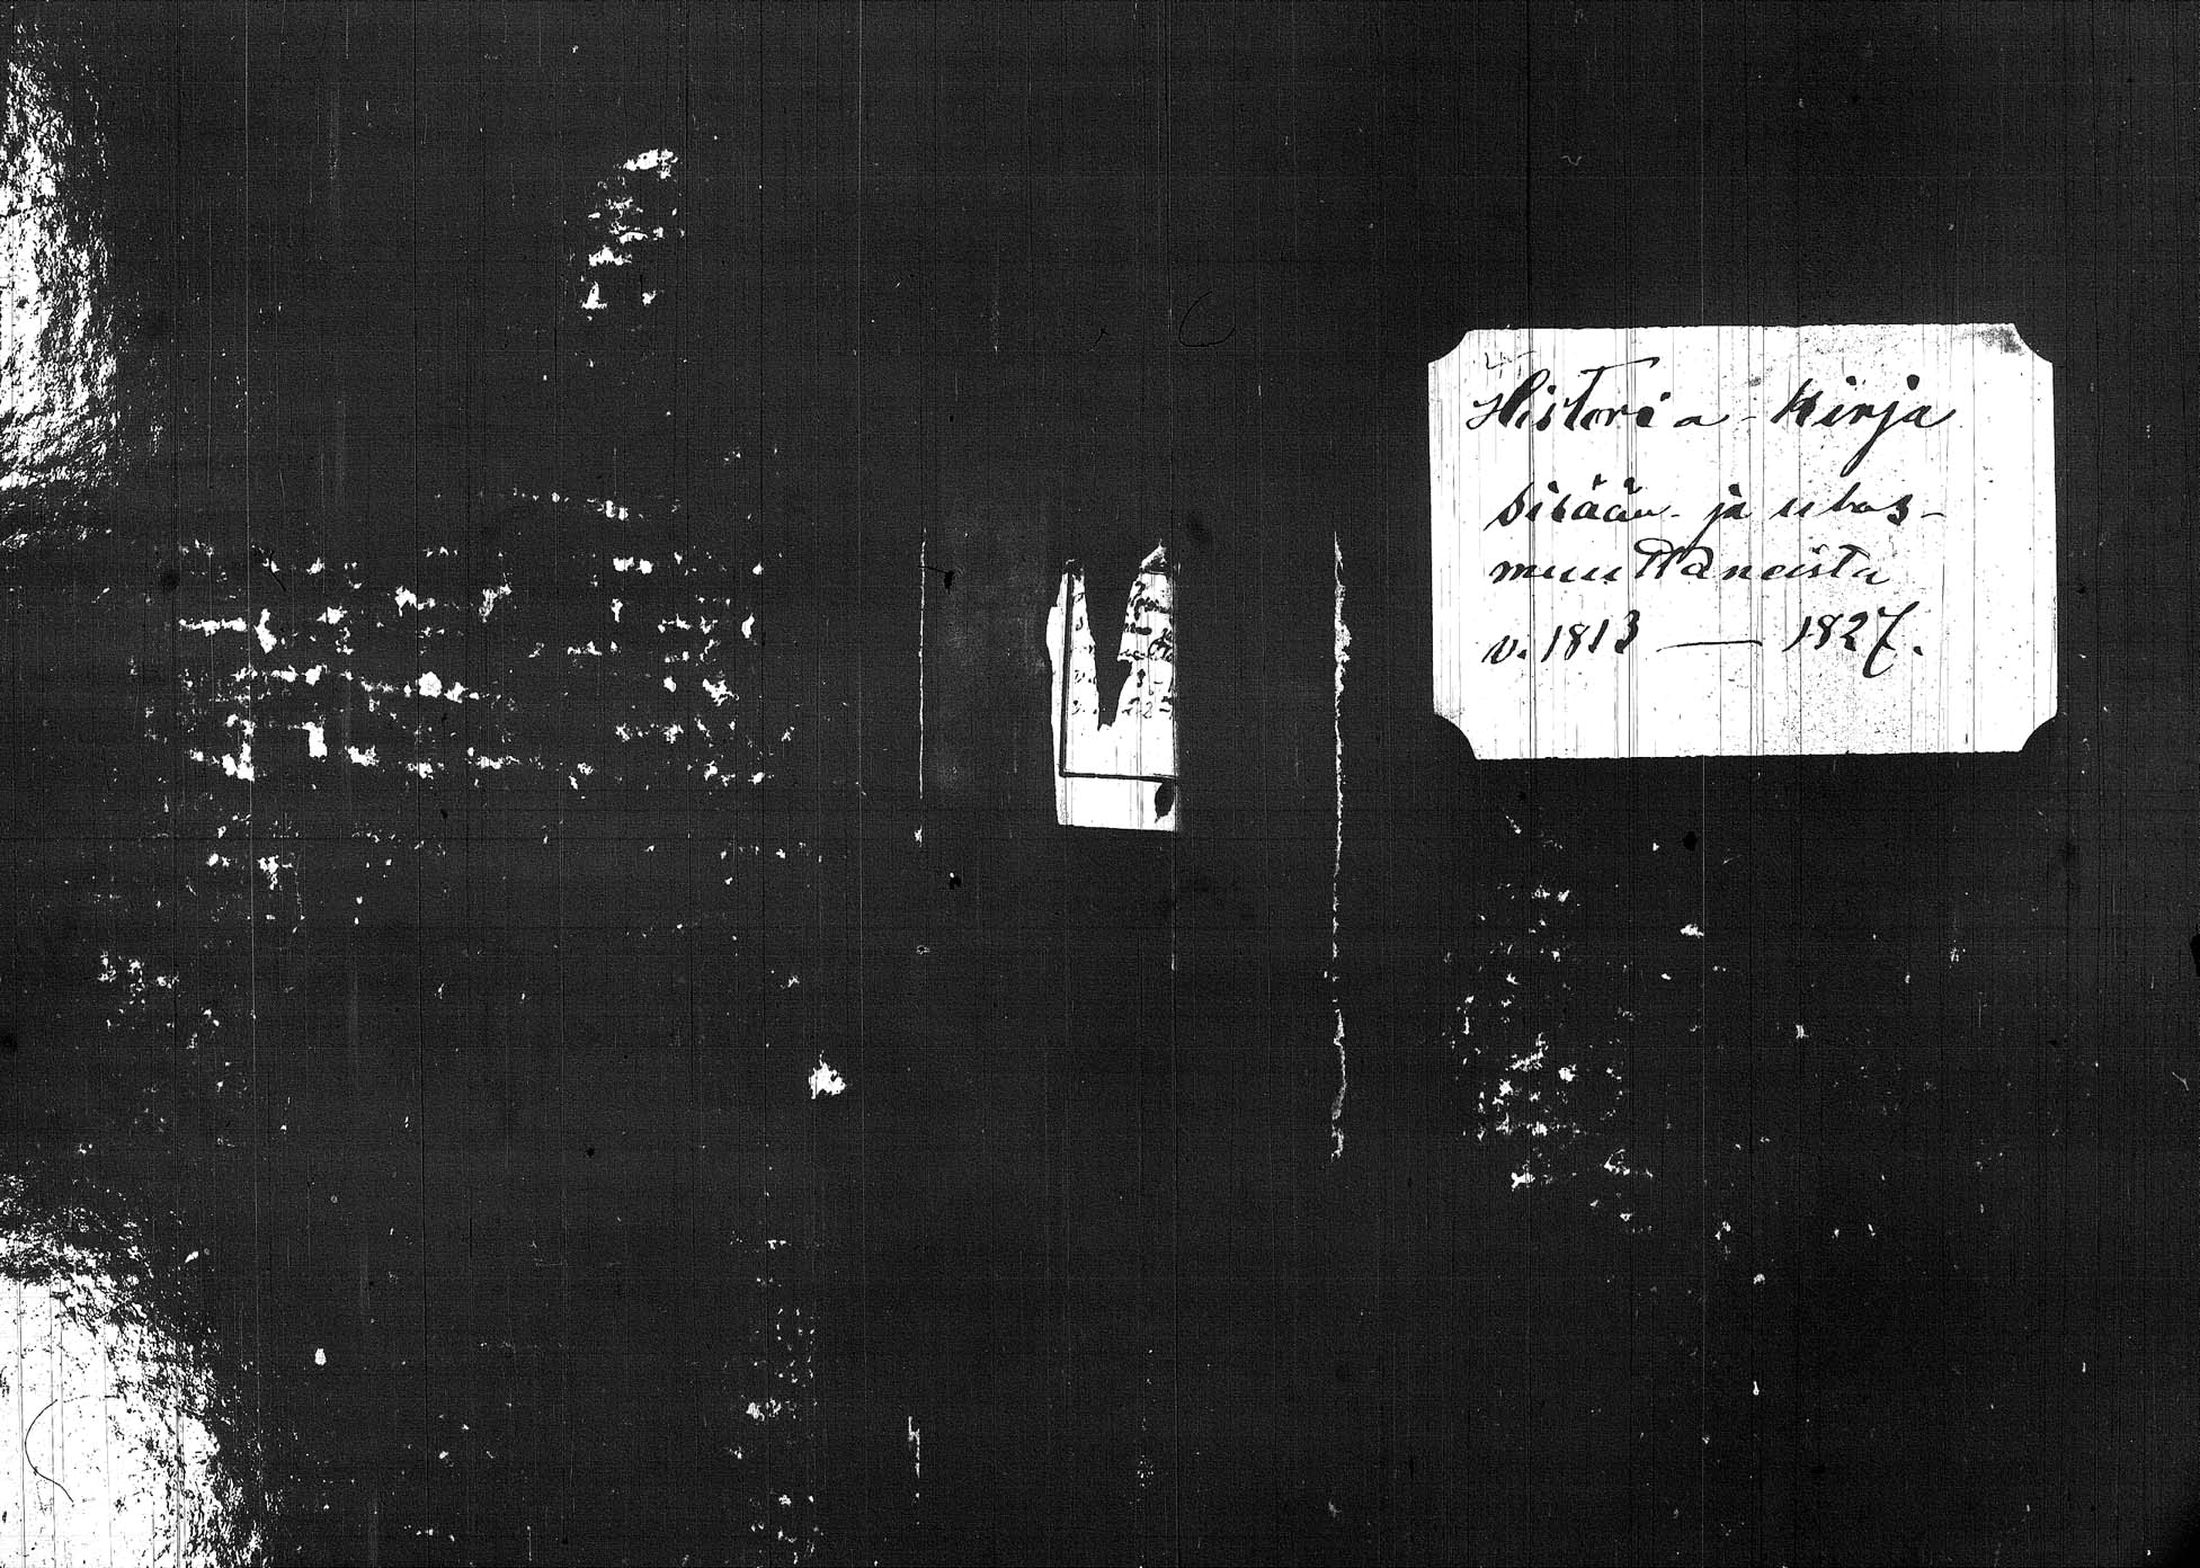 Historia-Kirja
sisään- ja ulos-
muuttaneista
v. 1813 — 1827.